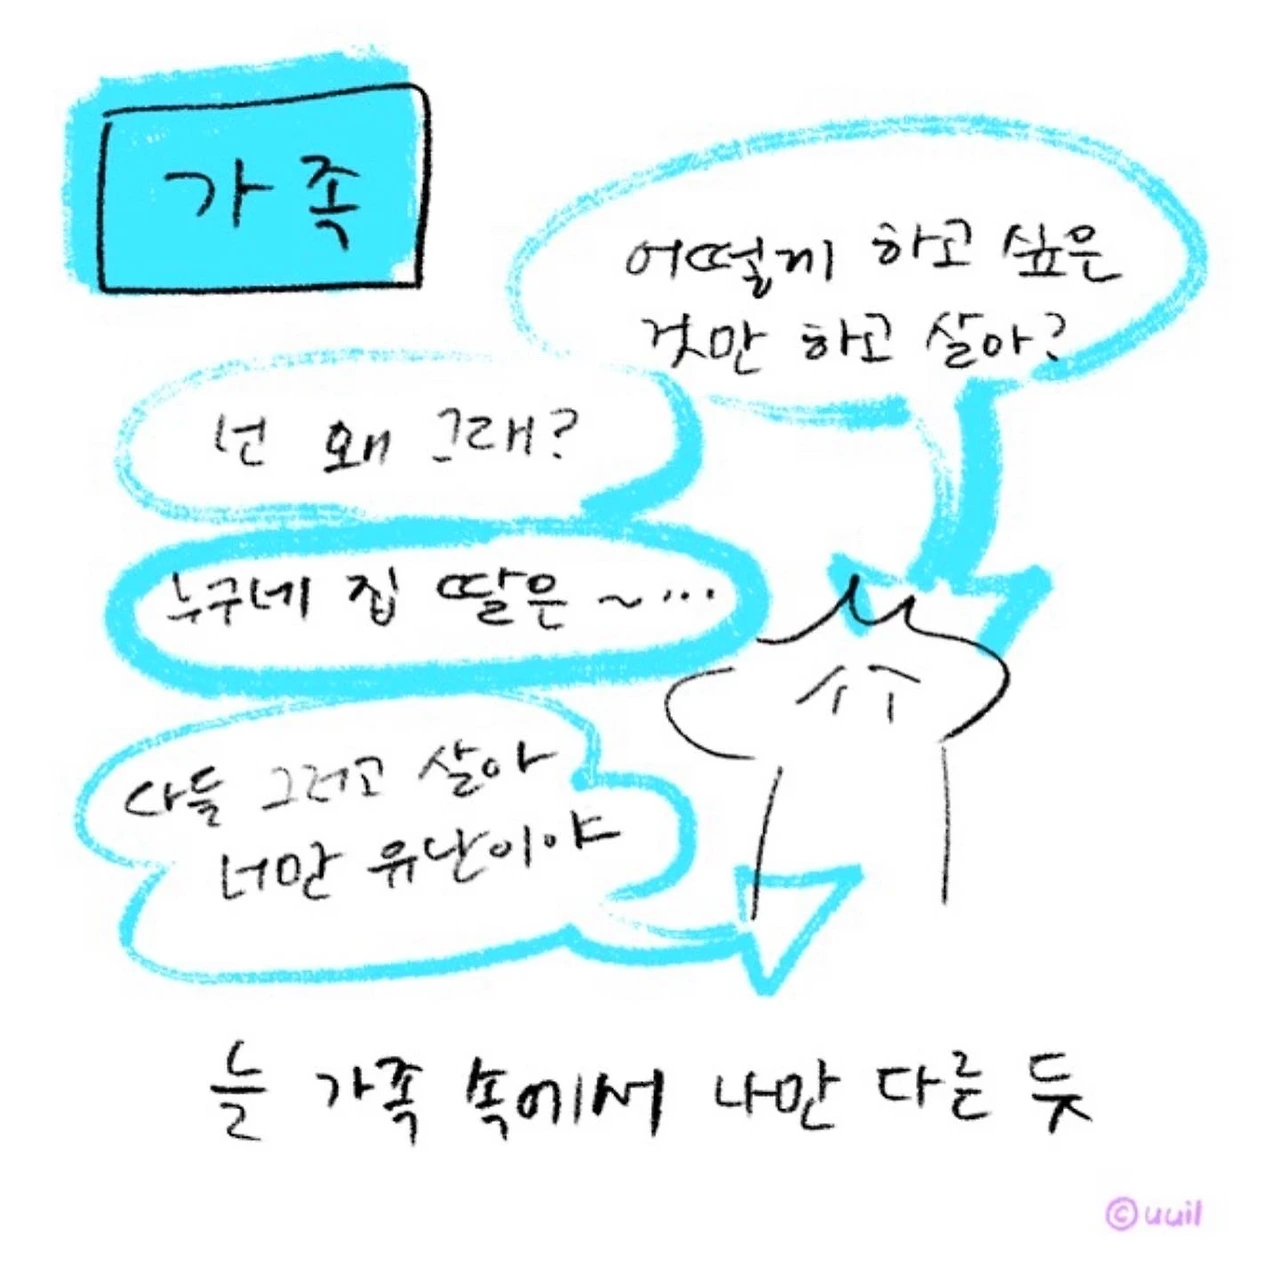 가족
어떻게 하고 싶은
것만 하고 살아?
넌 왜 그래?
누구네 집 딸은 ~...
다들 그러고 살아
너만 유난이야
늘 가족 속에서 나만 다른 듯
©uuil